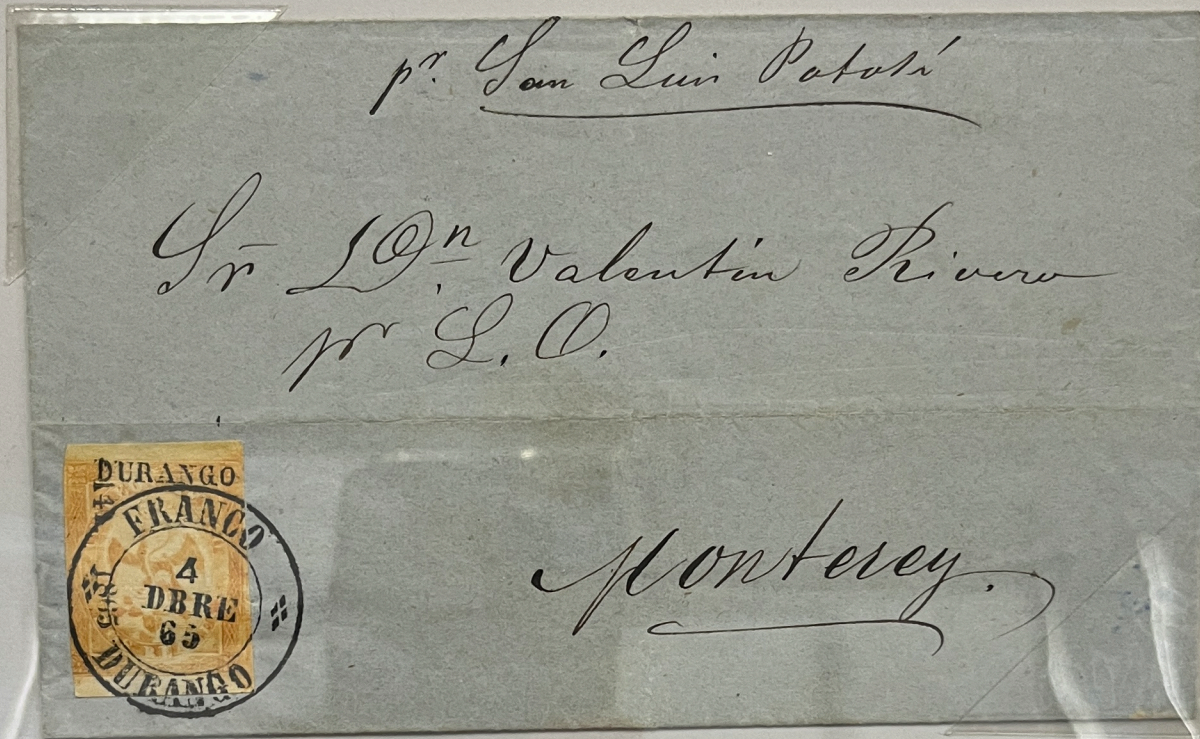 pr. San Luis Potosí
Sr Dn. Valentin Rivero
pr S. O.
Monterey.
DURANGO
FRANCO
4
DBRE
65
DURANGO